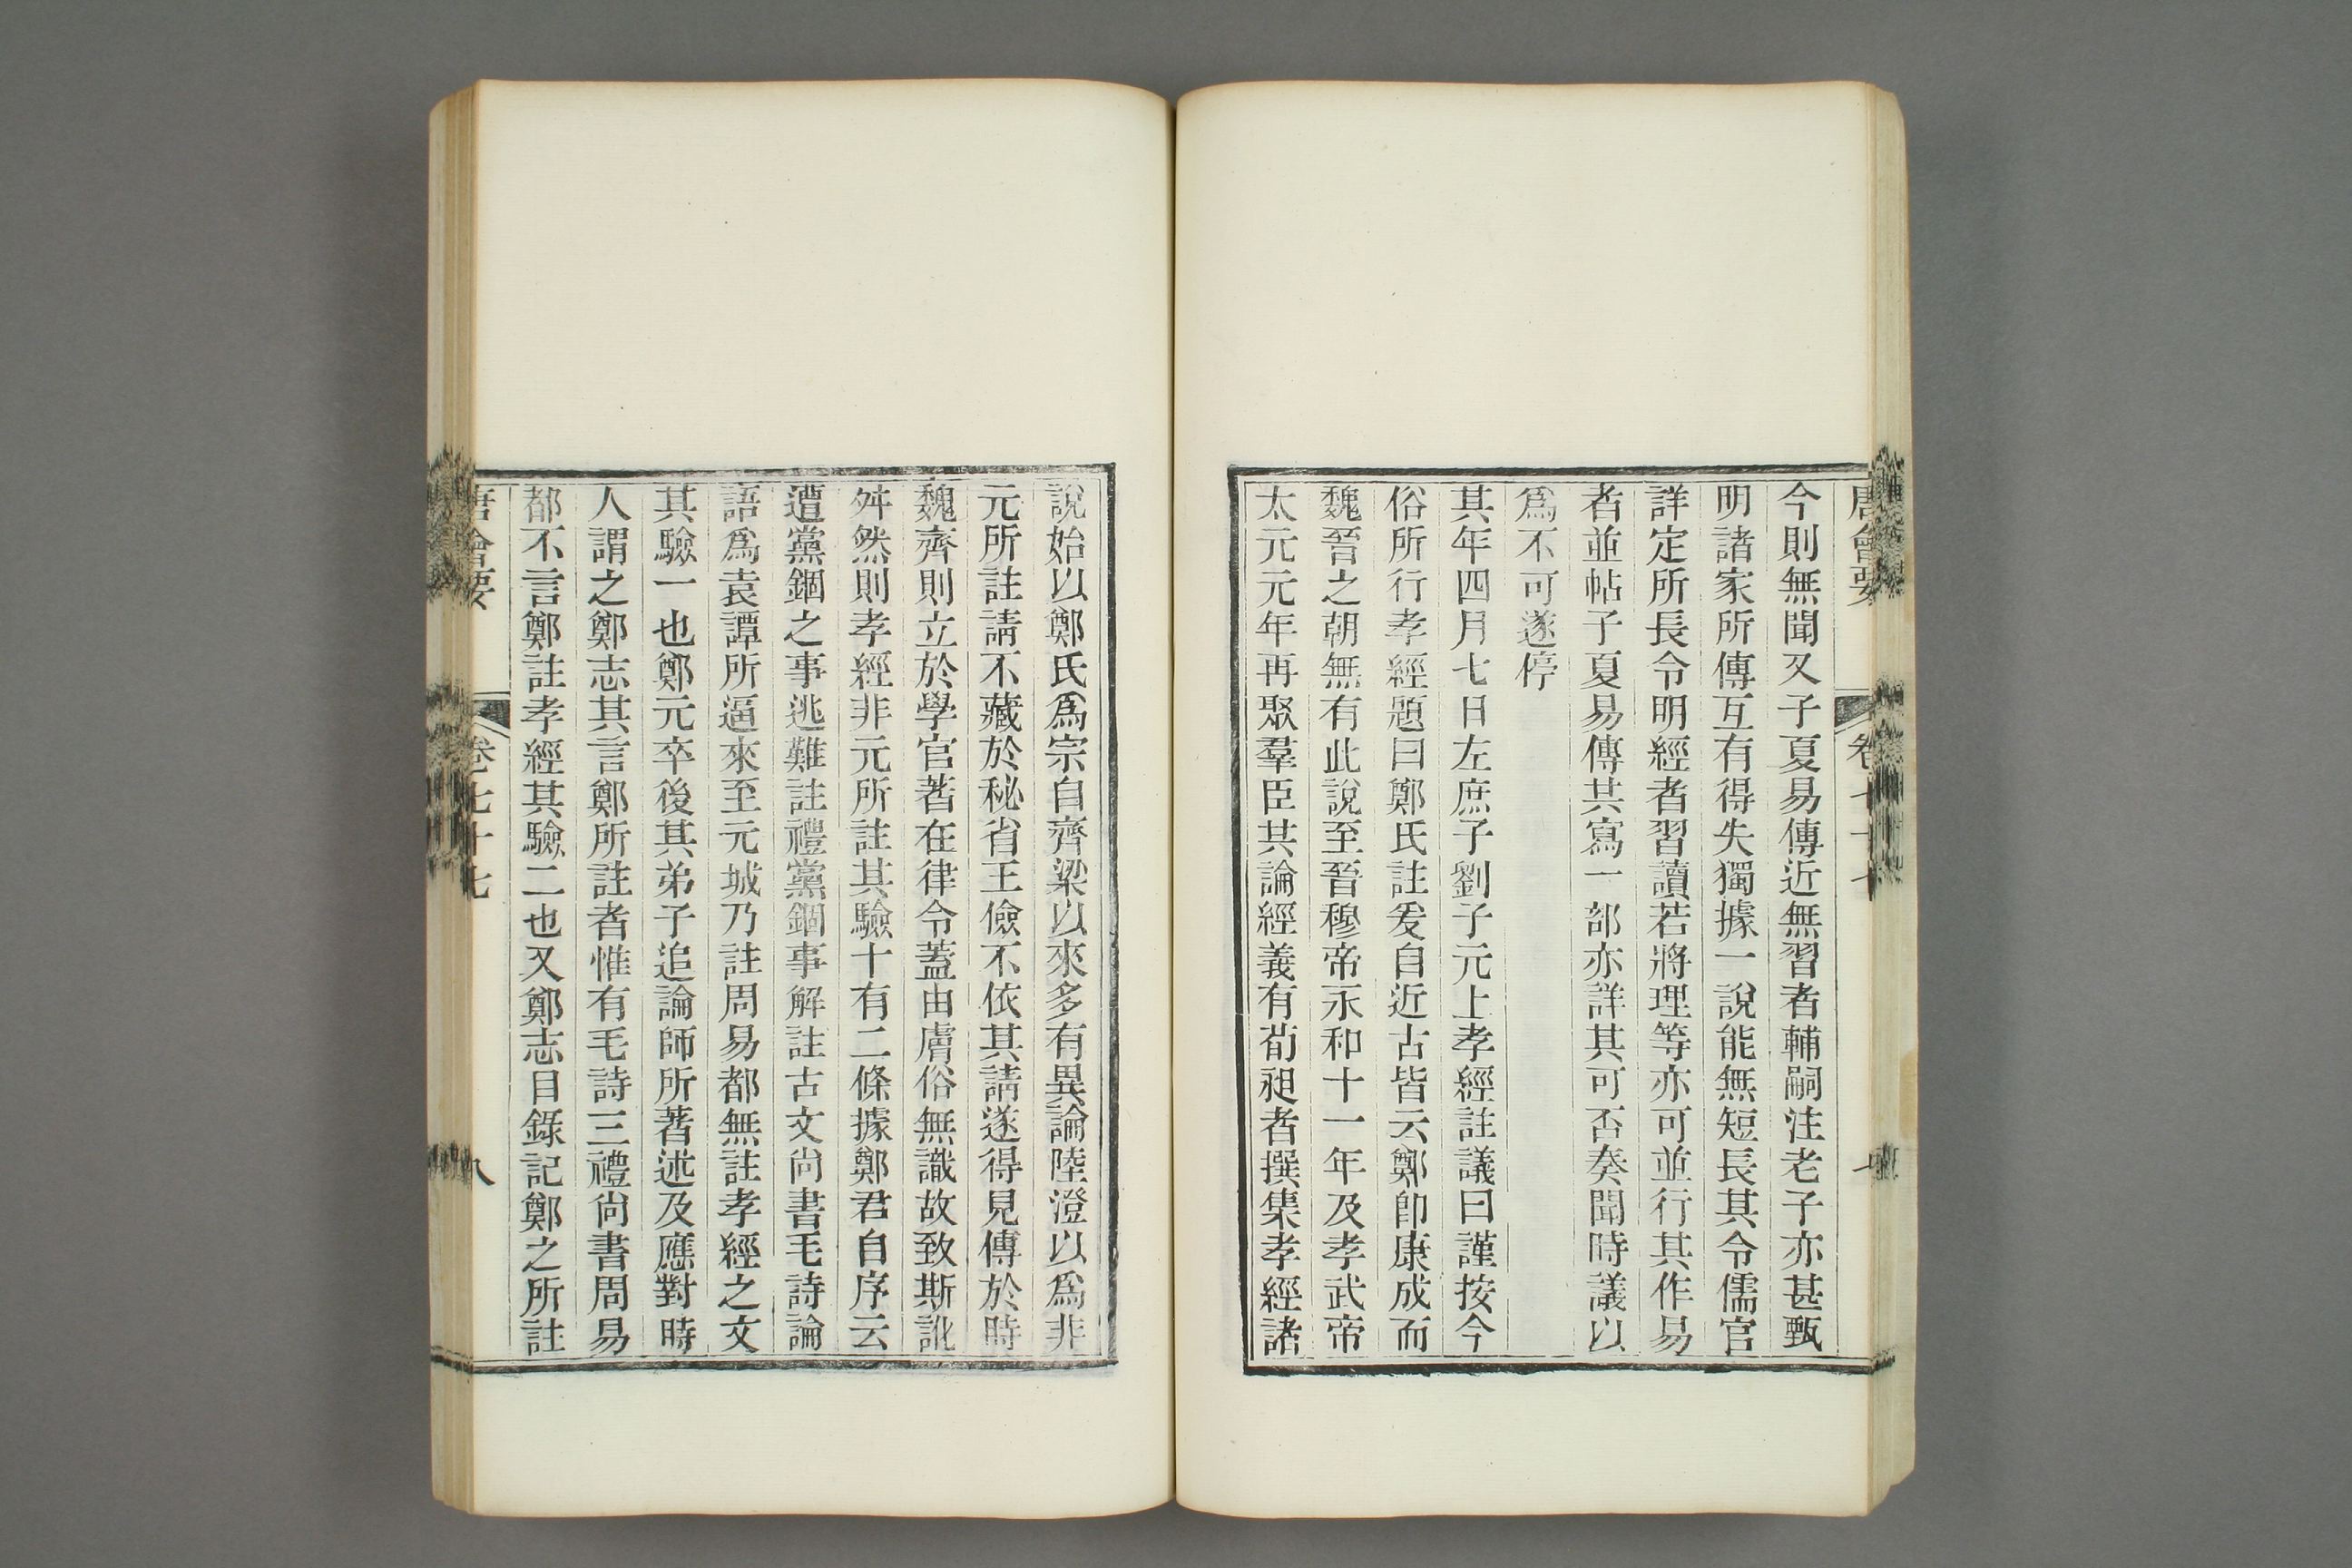 唐會要 卷七十七
今則無聞又子夏易傳近無習者輔嗣注老子亦甚甄
明諸家所傳互有得失獨據一說能無短長其令儒官
詳定所長令明經者習讀若將理等亦可並行其作易
者並帖子夏易傳共寫一部亦詳其可否奏聞時議以
爲不可遂停
其年四月七日左庶子劉子元上孝經註議曰謹按今
俗所行孝經題曰鄭氏註爰自近古皆云鄭卽康成而
魏晉之朝無有此說至晉穆帝永和十一年及孝武帝
太元元年再聚羣臣共論經義有荀昶者撰集孝經諸
說始以鄭氏爲宗自齊梁以來多有異論陸澄以爲非
元所註請不藏於秘省王儉不依其請遂得見傳於時
魏齊則立於學官著在律令蓋由膚俗無識故致斯訛
舛然則孝經非元所註其驗十有二條據鄭君自序云
遭黨錮之事逃難註禮黨錮事解註古文尙書毛詩論
語爲袁譚所逼來至元城乃註周易都無註孝經之文
其驗一也鄭元卒後其弟子追論師所著述及應對時
人謂之鄭志其言鄭所註者惟有毛詩三禮尙書周易
都不言鄭註孝經其驗二也又鄭志目錄記鄭之所註
唐會要 卷七十七 八